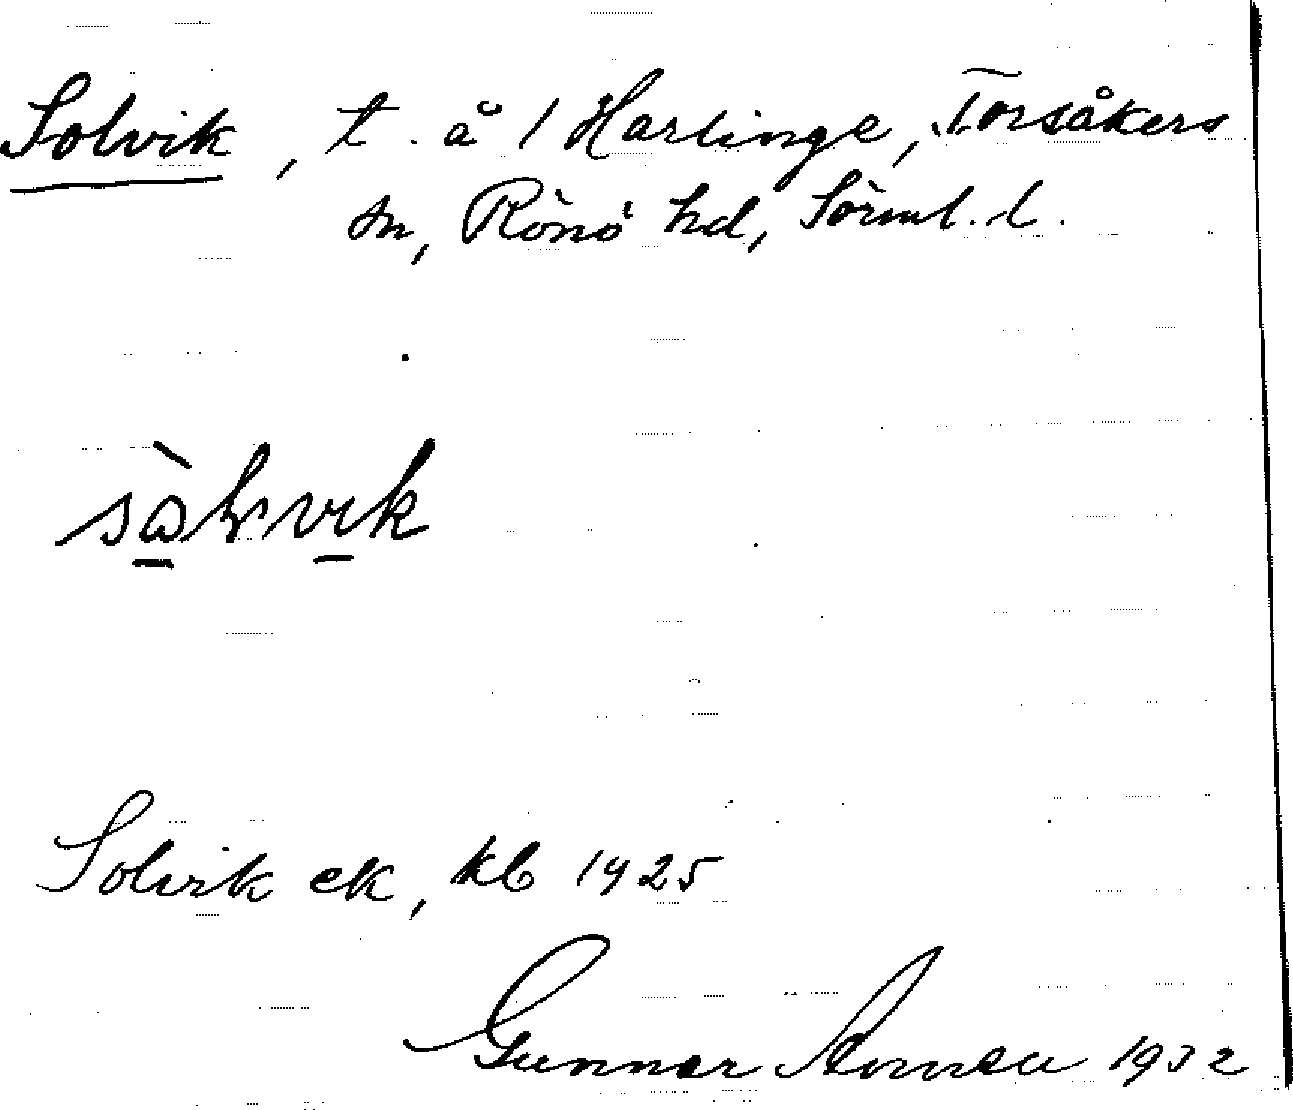 Solvik, t. å 1 Harlinge, Torsåkers
sn, Rönö hd, Sörml. l.
sàlvik
Solvik ek, kb 1925
Gunnar 1932